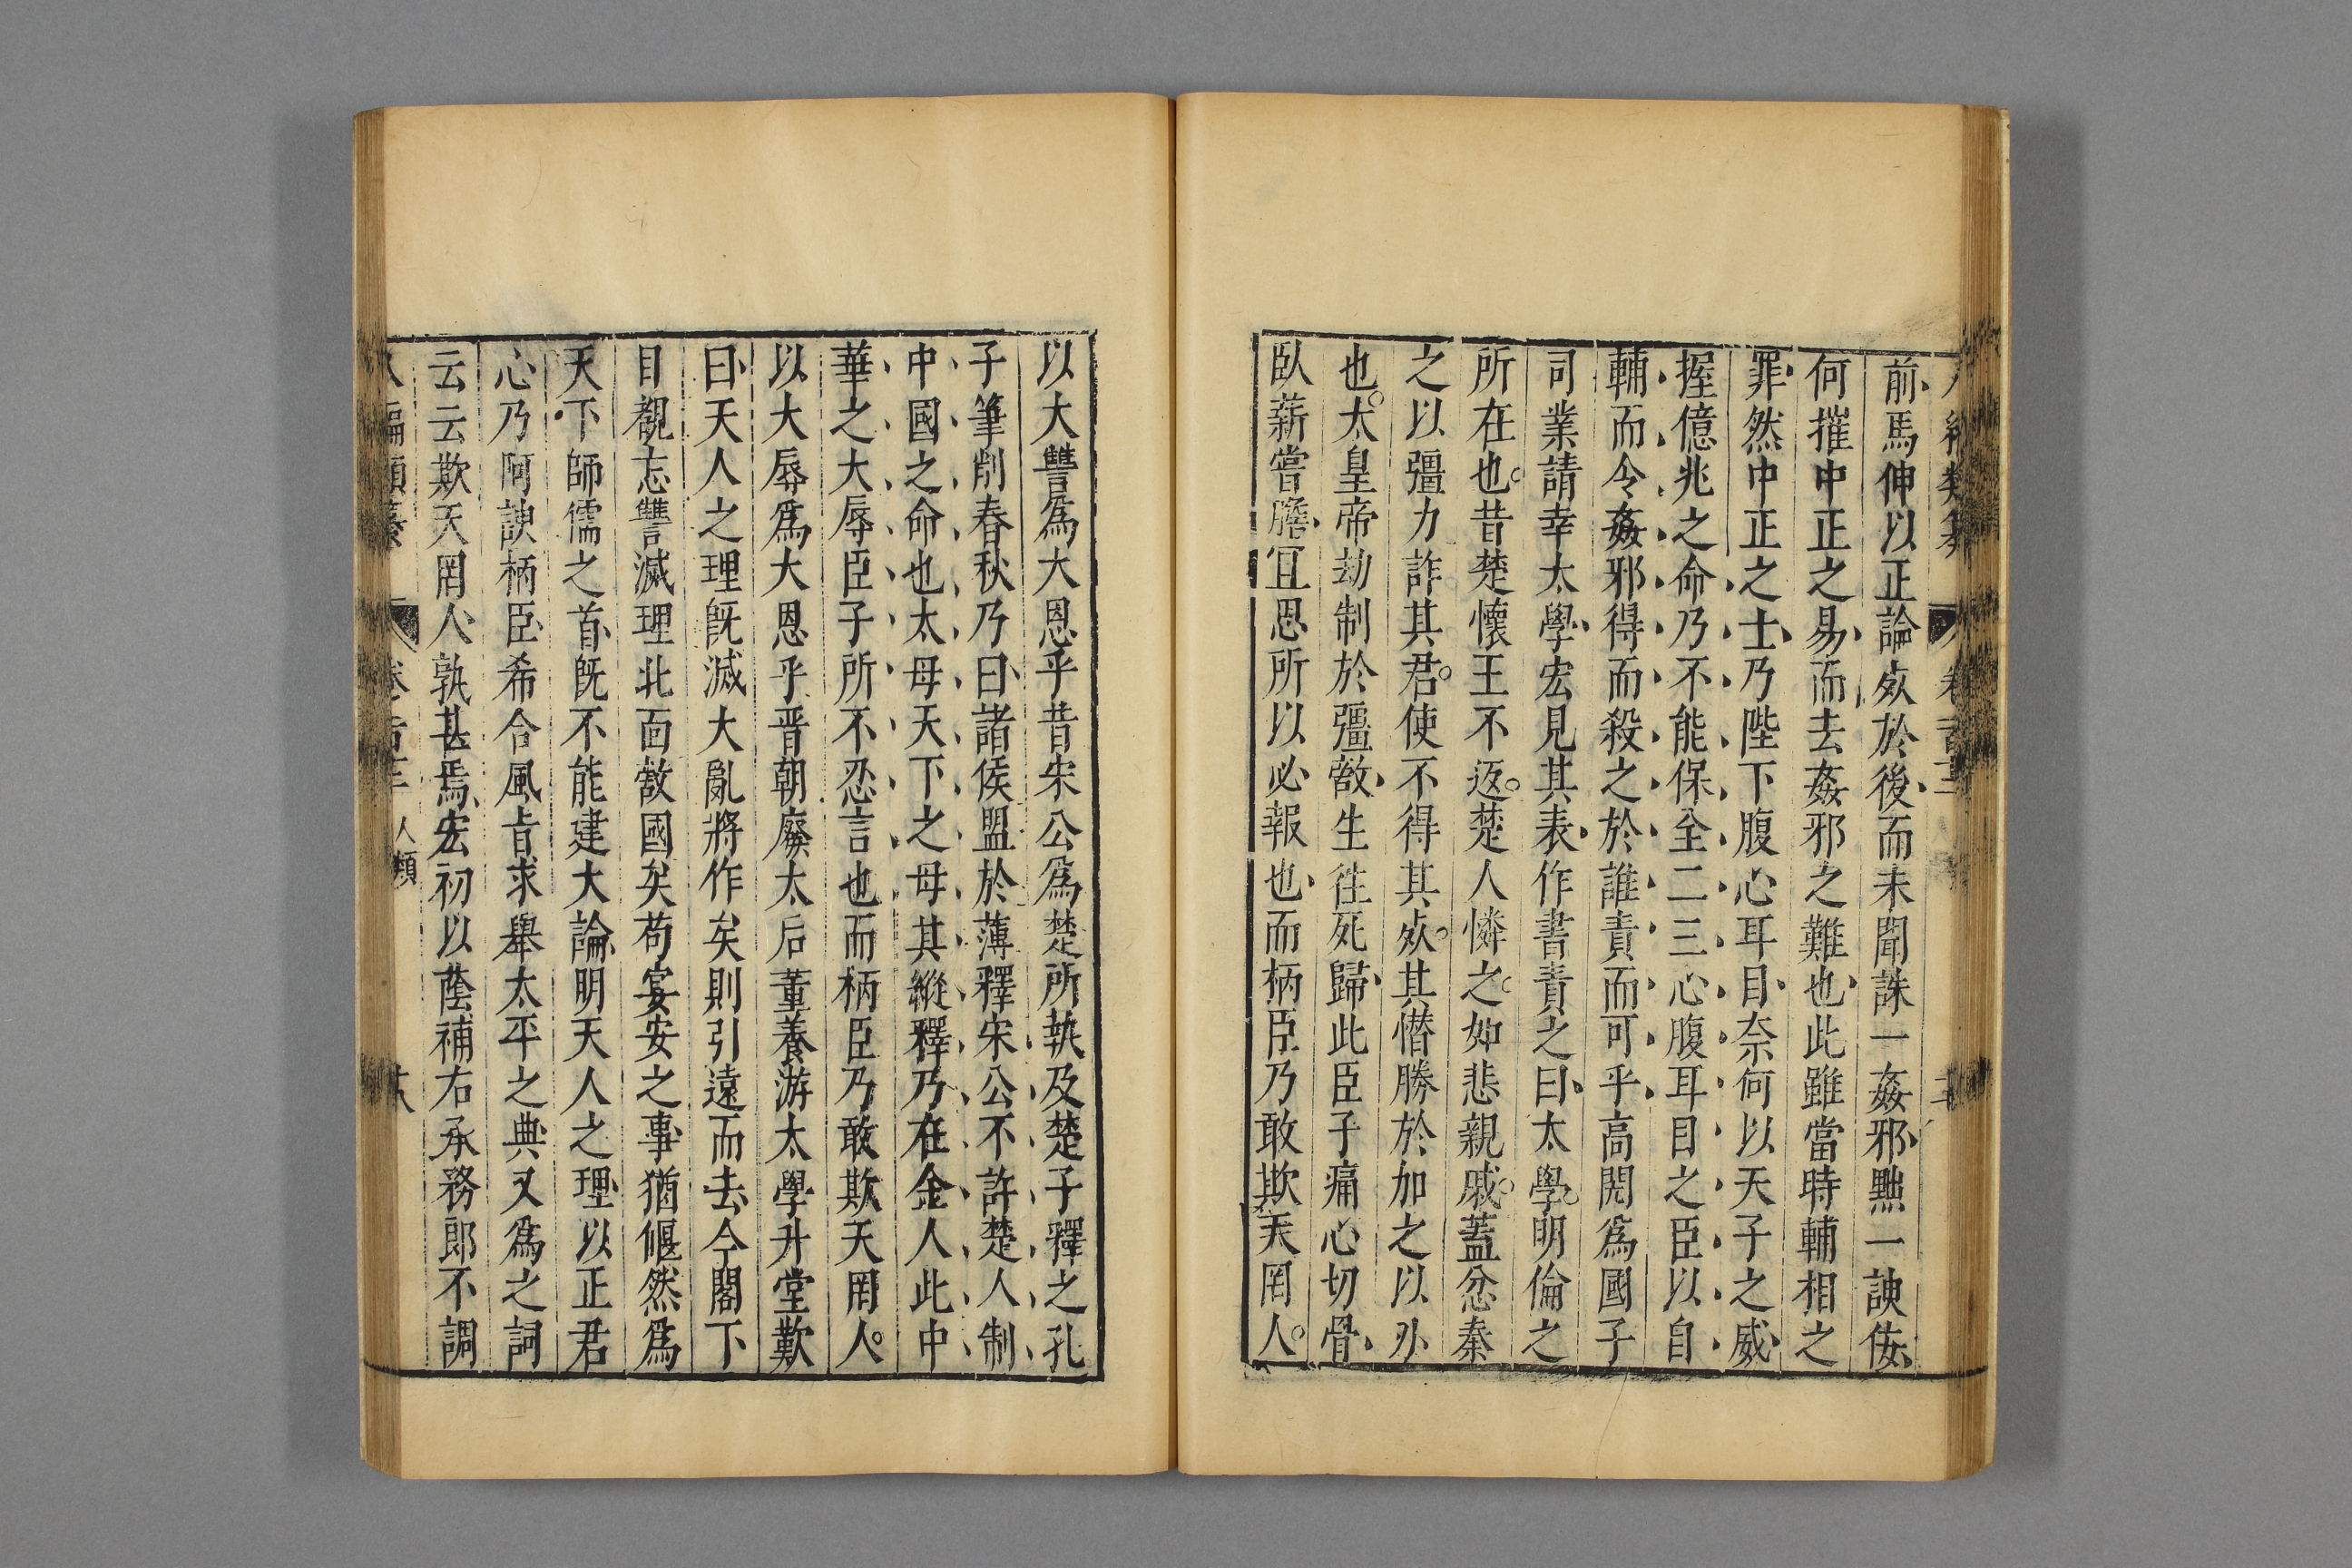 前馬伸以正論𣦸於後而未聞誅一姦邪黜一諛佞
何摧中正之易而去姦邪之難也此雖當時輔相之
罪然中正之士乃陛下腹心耳目奈何以天子之威
握億兆之命乃不能保全二三心腹耳目之臣以自
輔而令姦邪得而殺之於誰責而可乎高閌爲國子
司業請幸太學宏見其表作書責之曰太學明倫之
所在也昔楚懷王不返楚人憐之如悲親戚蓋忿秦
之以彊力詐其君使不得其𣦸其憯勝於加之以刅
也太皇帝劫制於彊敵生往死歸此臣子痛心切骨
臥薪嘗膽宜思所以必報也而柄臣乃敢欺天罔人
以大讐爲大恩乎昔宋公爲楚所執及楚子釋之孔
子筆削春秋乃曰諸侯盟於薄釋宋公不許楚人制
中國之命也太母天下之母其縱釋乃在金人此中
華之大辱臣子所不忍言也而柄臣乃敢欺天罔人
以大辱爲大恩乎晋朝廢太后董養游太學升堂歎
曰天人之理旣滅大亂將作矣則引遠而去今閣下
目覩忘讐滅理北面敵國矣苟宴安之事猶偃然爲
天下師儒之首旣不能建大論明天人之理以正君
心乃阿諛柄臣希合風旨求舉太平之典又爲之詞
云云欺天罔人孰甚焉宏初以蔭補右承務郎不調
人類